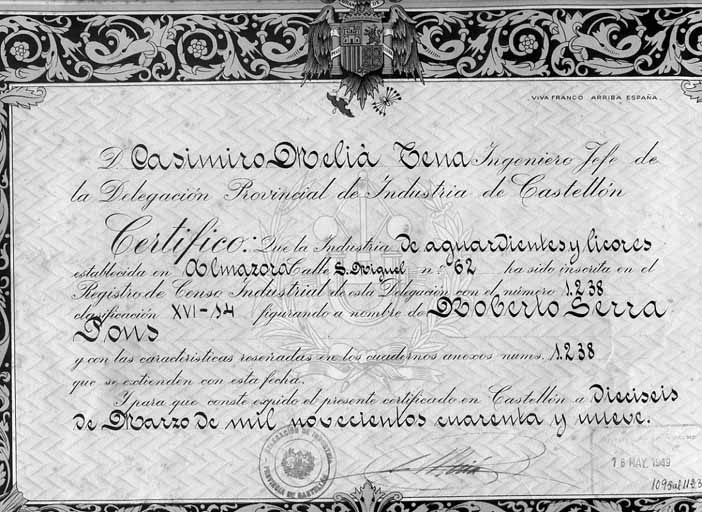 VIVA FRANCO ARRIBA ESPAÑA.
D. Casimiro Meliá Tena Ingeniero Jefe de
la Delegación Provincial de Industria de Castellón
Certifico: Que la Industria de aguardientes y licores
establecida en Almazora Calle S. Miguel n.º 62 ha sido inscrita en el
Registro de Censo Industrial de esta Delegación con el número 1.238
clasificación XVI-14 figurando a nombre de Roberto Serra
Pons
y con las características reseñadas en los cuadernos anexos nums. 1.238
que se extienden con esta fecha.
Y para que conste expido el presente certificado en Castellón a Dieciseis
de Marzo de mil novecientos cuarenta y nueve.
DELEGACIÓN DE INDUSTRIA
PROVINCIA DE CASTELLÓN
16 MAY. 1949